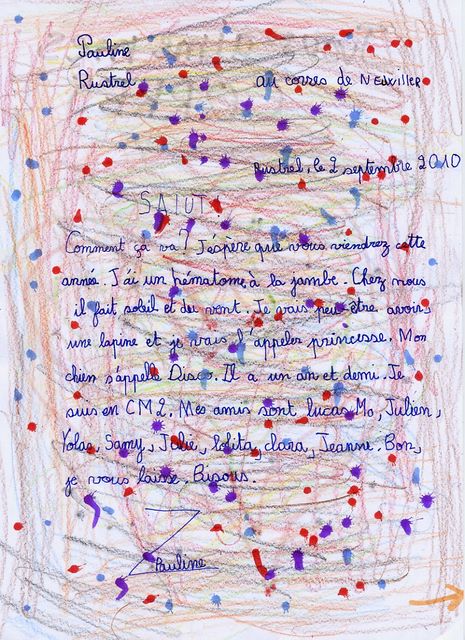 Pauline
Rustrel au corres de NEUViLLER
Rustrel, le 2 septembre 2010
SALUT!
Comment ça va? J'espère que vous viendrez cette
année. J'ai un hématome à la jambe. Chez nous
il fait soleil et du vent. Je vais peut-être avoir
une lapine et je vais l'appeler princesse. Mon
chien s'appelle Disco. Il a un an et demi. Je
suis en CM2. Mes amis sont lucas, Mo, Julien,
Samy, Julie, lolita, clara, Jeanne. Bon,
je vous laisse. Bisous.
Pauline